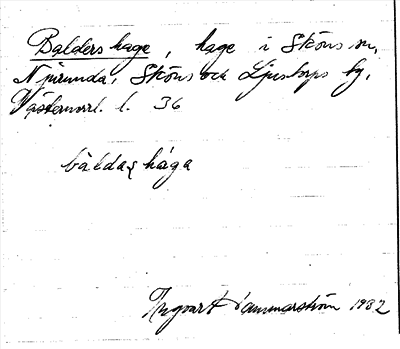 Balders hage, hage i Sköns sn,
Njurunda, Sköns och Ljustorps tg,
Västernorrl. l. 36
bàldaʂ hága
Ingvart Hammarström 1932